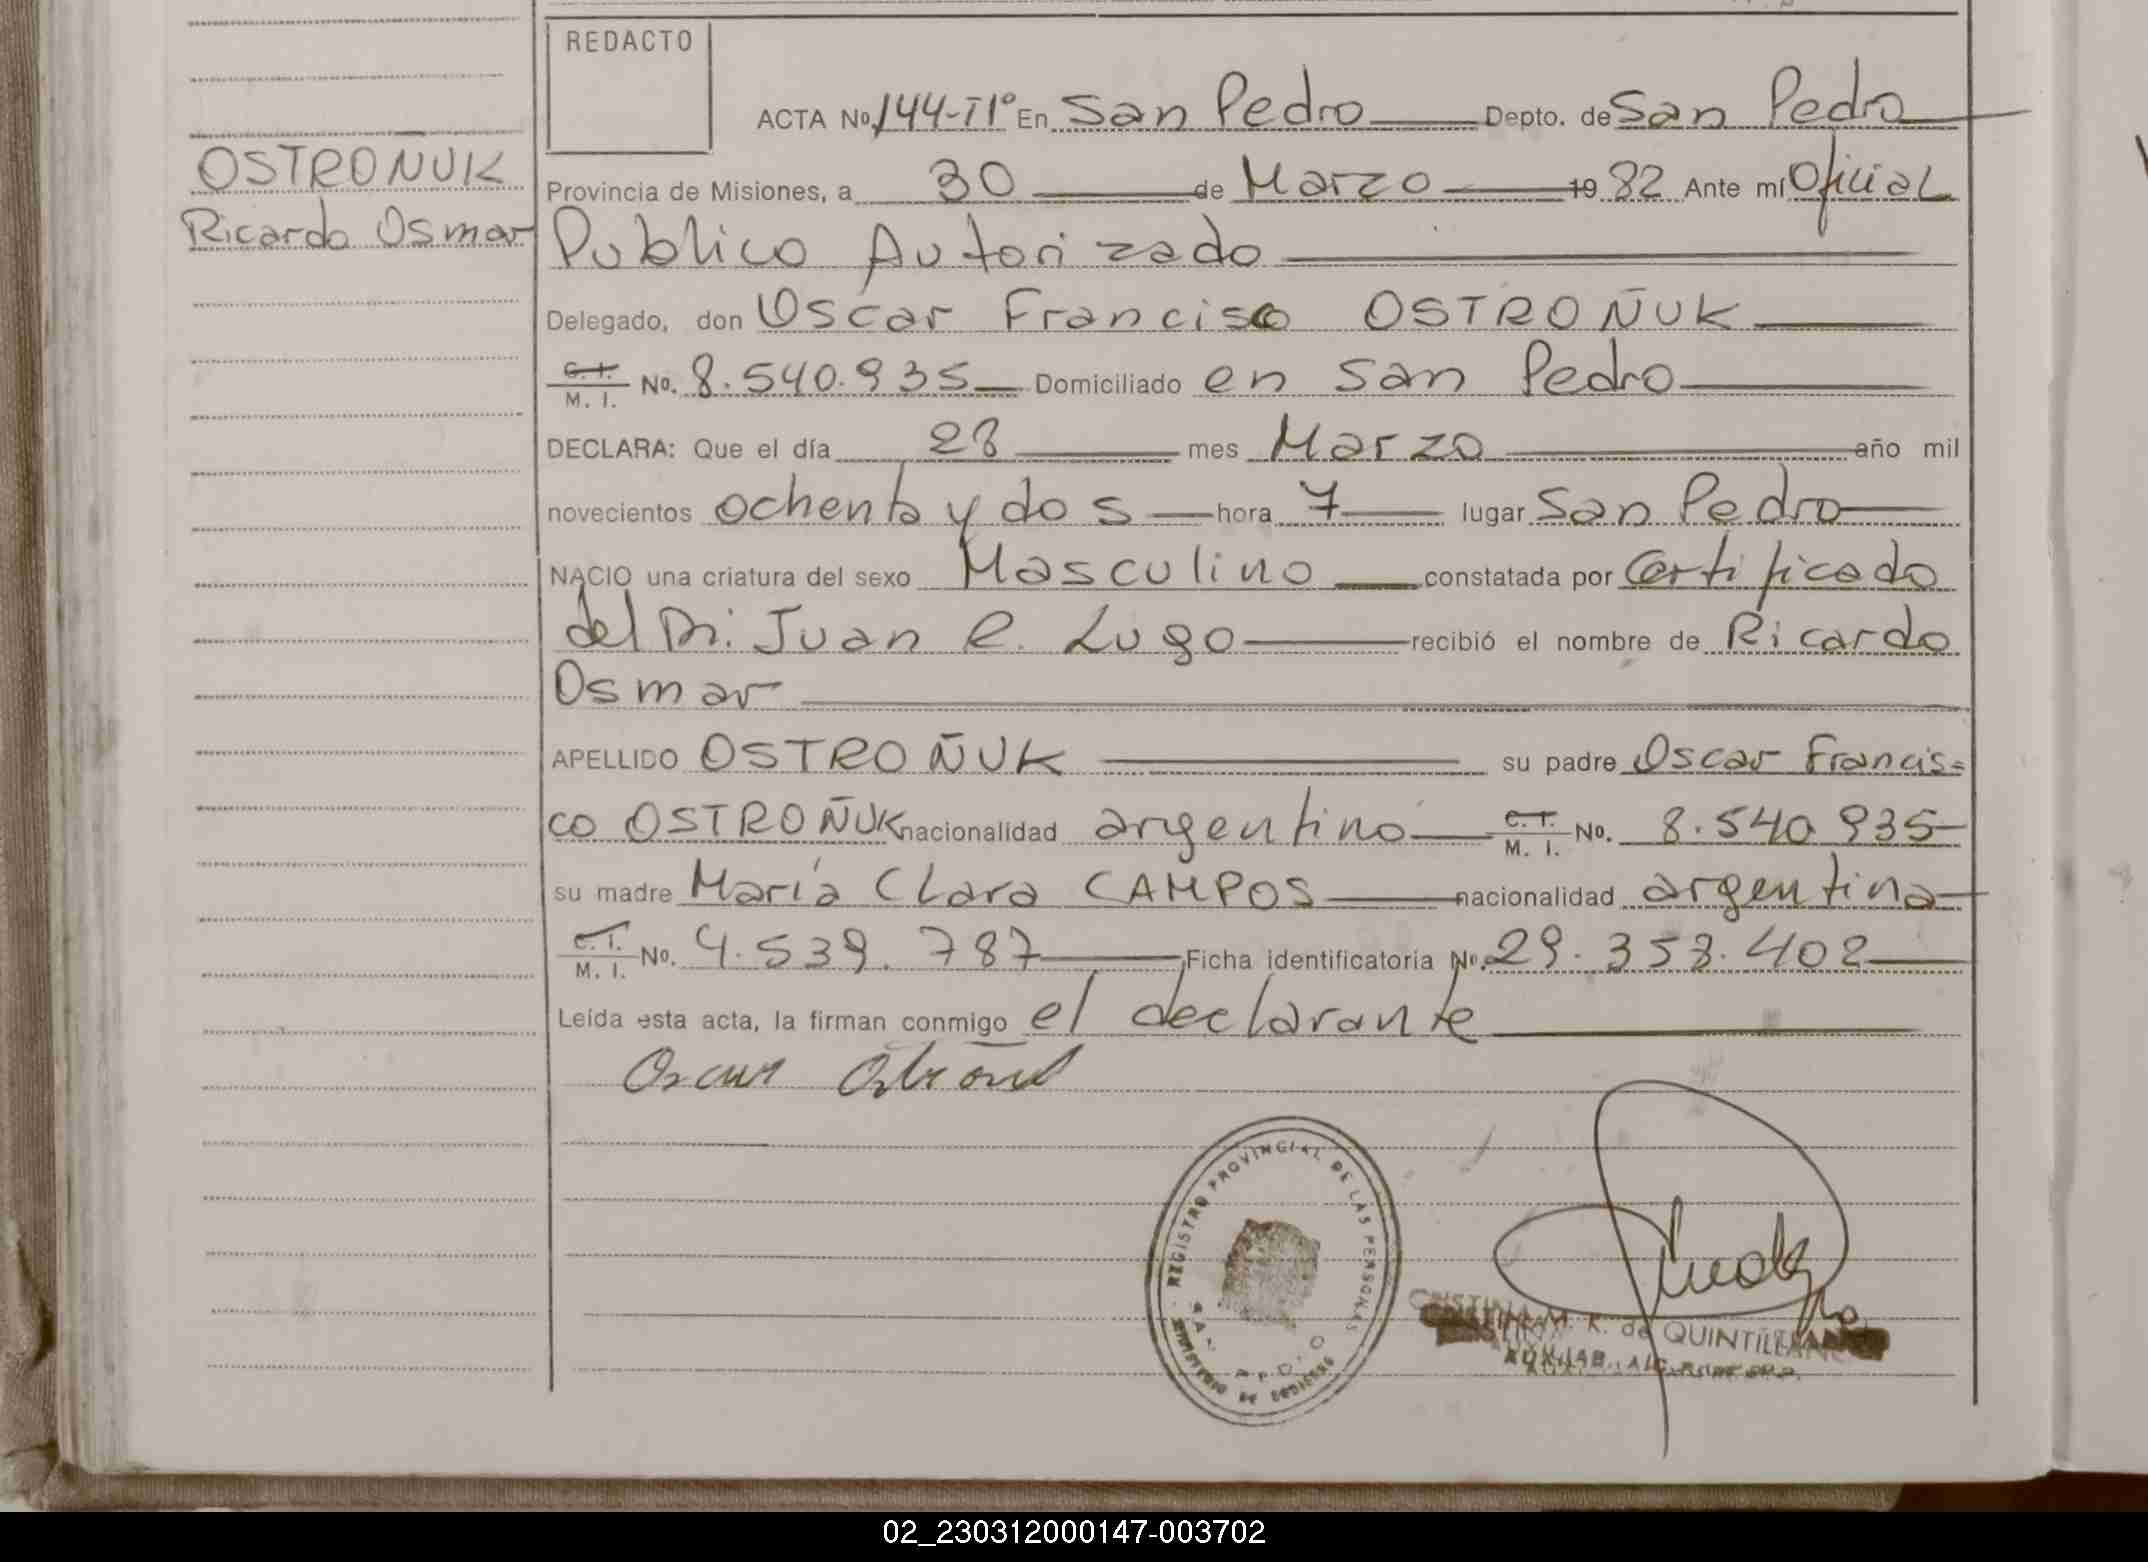 REDACTO
ACTA No. 144-II° En San Pedro Depto. de San Pedro
OSTROÑUK
Ricardo Osmar
Provincia de Misiones, a 30 de Marzo 1982 Ante mí Oficial
Publico Autorizado
Delegado, don Oscar Francisco OSTROÑUK
C. I. M. I. No. 8.540.935 Domiciliado en San Pedro
DECLARA: Que el día 28 mes Marzo año mil
novecientos ochenta y dos hora 7 lugar San Pedro
NACIO una criatura del sexo Masculino constatada por Certificado
del Dr. Juan R. Lugo recibió el nombre de Ricardo
Osmar
APELLIDO OSTROÑUK su padre Oscar Francis=
co OSTROÑUK nacionalidad argentino C. I. M. I. No. 8.540.935
su madre María Clara CAMPOS nacionalidad argentina
C. I. M. I. No. 4.539.787 Ficha identificatoria No. 29.353.402
Leída esta acta, la firman conmigo el declarante
Oscar
REGISTRO PROVINCIAL DE LAS PERSONAS
SAN PEDRO
MINISTERIO DE GOBIERNO
CRISTINA M. K. de QUINTILLAN
AUXILIAR
02_230312000147-003702